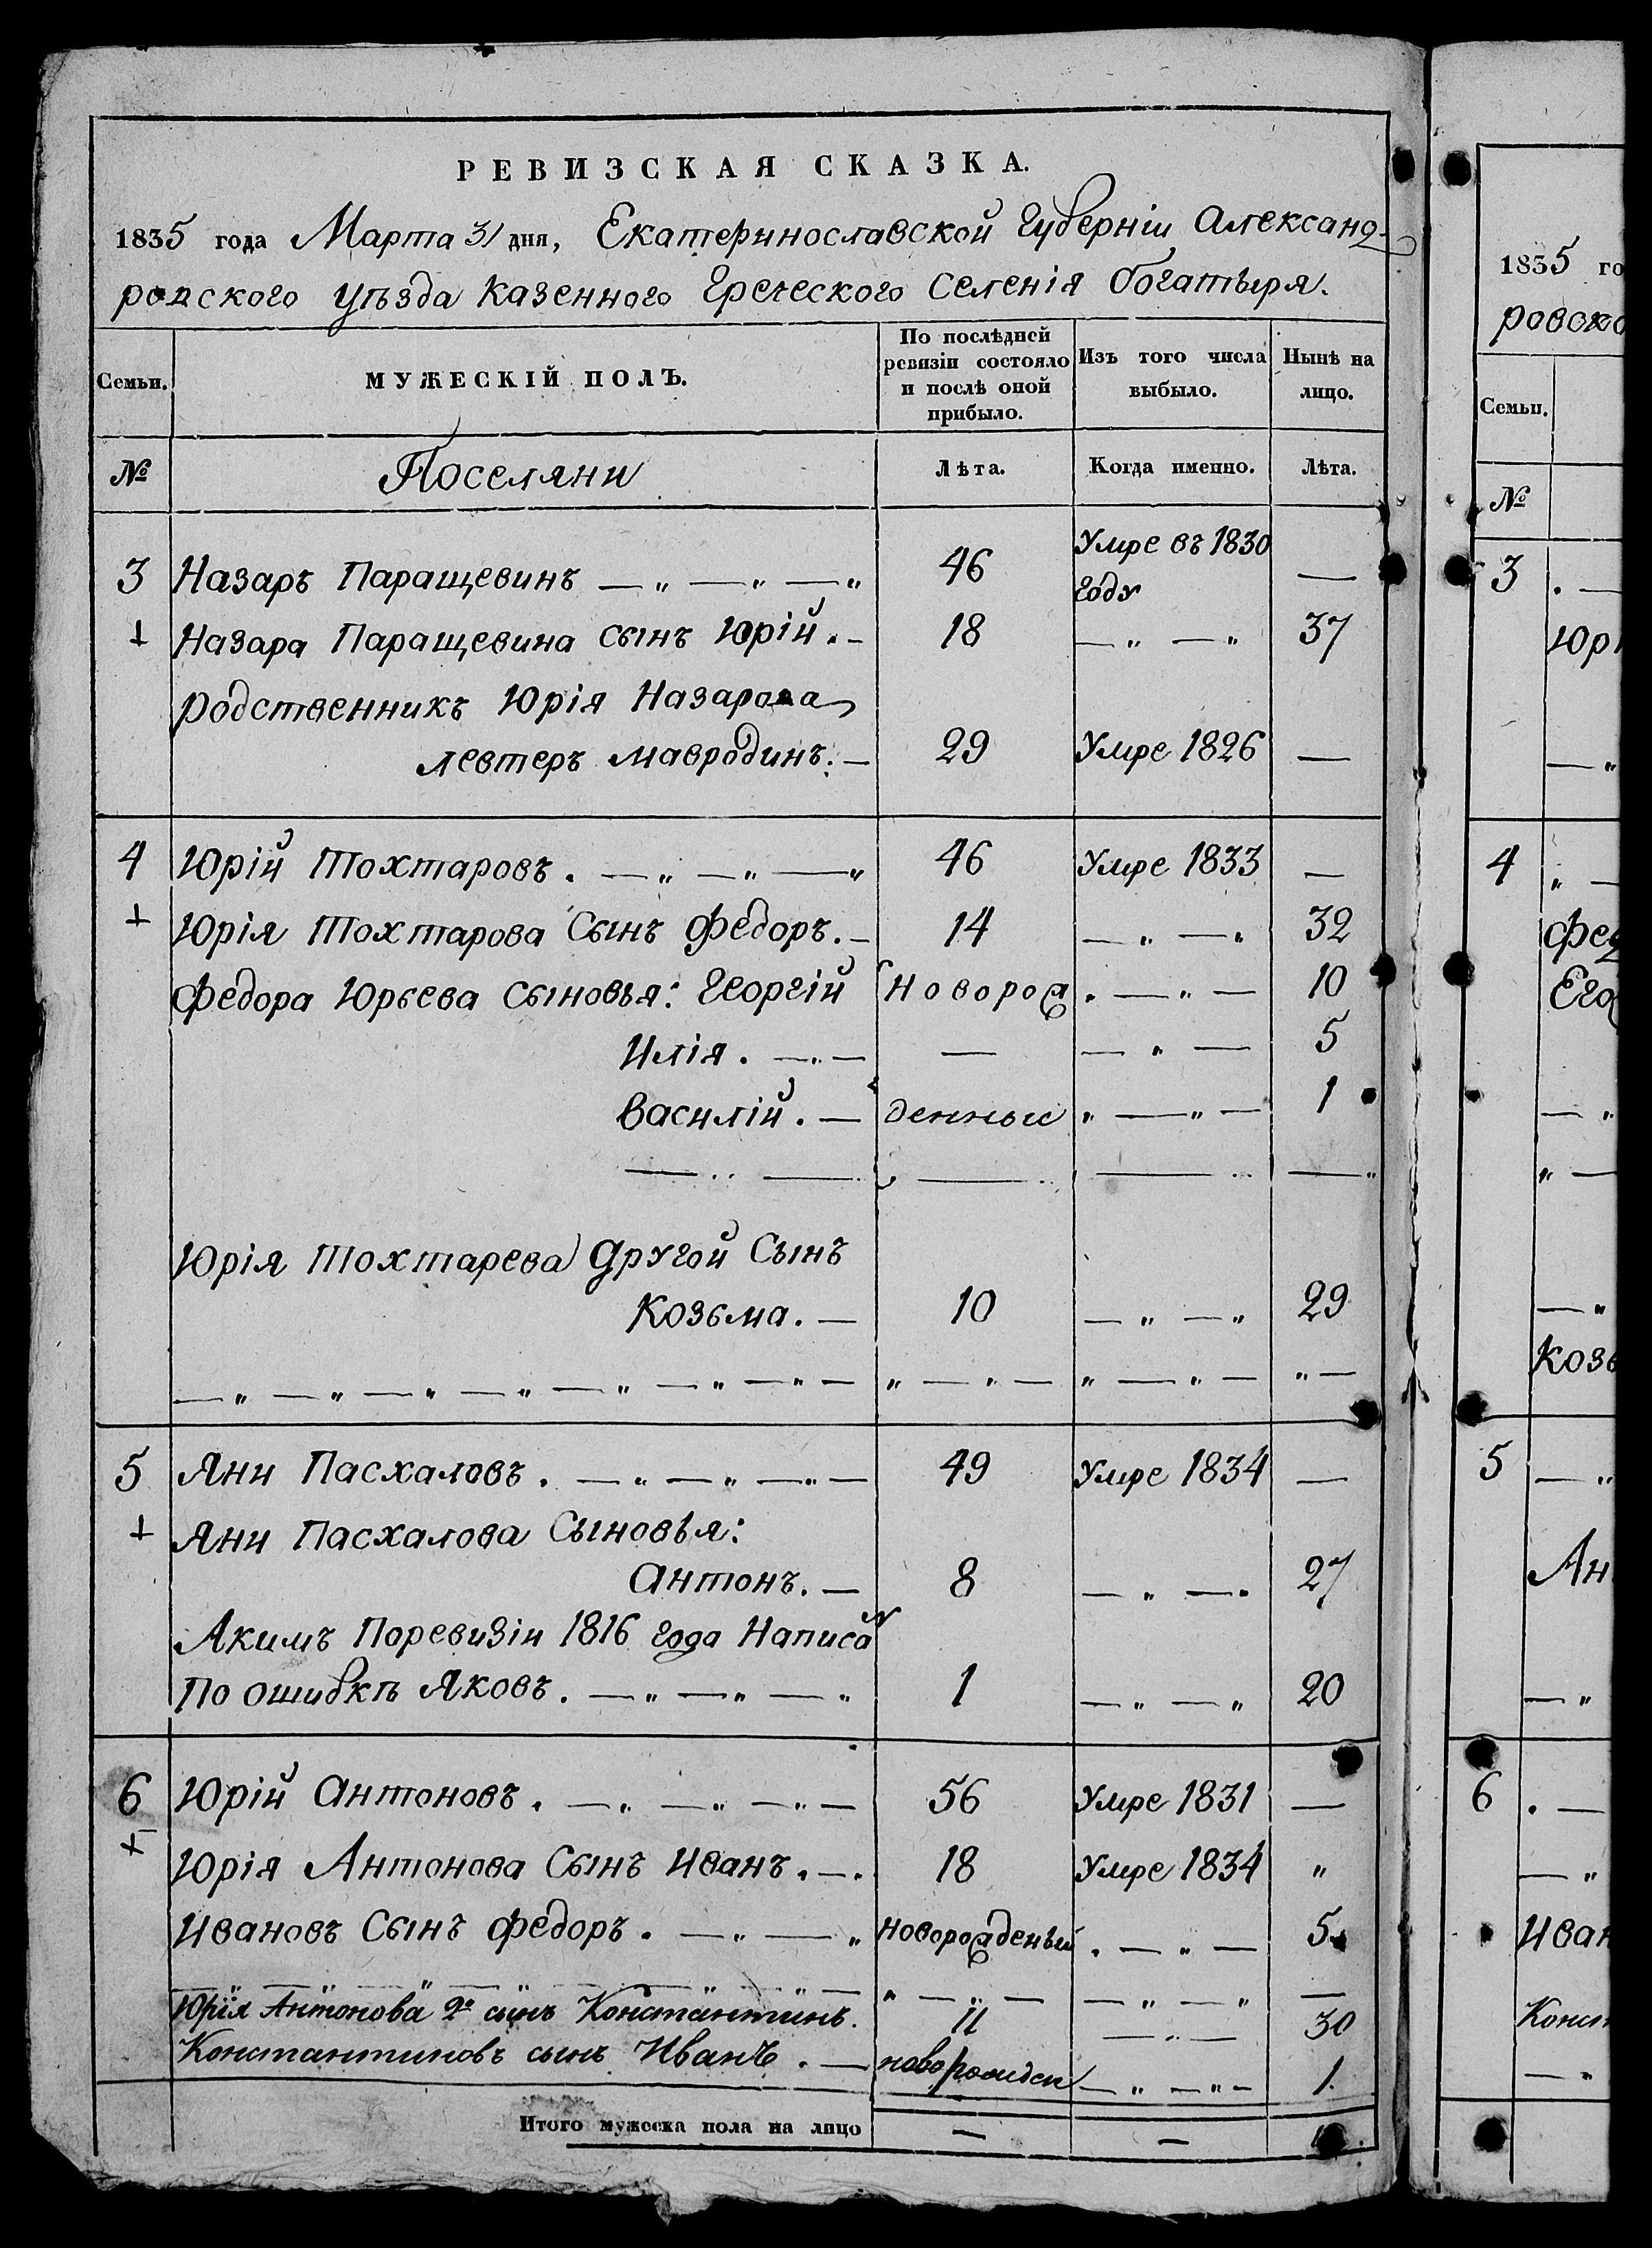 РЕВИЗСКАЯ СКАЗКА.
1835 года Марта 31 дня, Екатеринославской Губернiи Александ-
ровского уѣзда Казенного Греческого Селенiя богатыря.
Семьи.
МУЖЕСКIЙ ПОЛЪ.
По послѣдней ревизiи состояло и послѣ оной прибыло.
Изъ того числа выбыло.
Нынѣ на лицо.
№ Поселяни Лѣта. Когда именно. Лѣта.
3 Назаръ Паращевинъ — „ — „ — „ 46 Умре въ 1830 Году —
+ Назара Паращевина сынъ Юрiй. - 18 — „ — „ 37
родственникъ Юрiя Назарова
левтеръ мавродинъ. — 29 Умре 1826 —
4 Юрiй Тохтаровъ. — „ — „ — „ 46 Умре 1833 —
+ Юрiя Тохтарова Сынъ Федоръ. - 14 — „ — „ 32
Федора Юрьева Сыновья: Георгiй Новорож „ — „ — 10
Илiя. — „ — — — „ — 5
василiй. — денные „ — „ — 1
Юрiя Тохтарева другой Сынъ
Козьма. — 10 — „ — „ 29
— „ — „ — „ — „ — „ — „ — „ — „ — „ — „ — „ — „ —
5 Яни Пасхаловъ. — „ — „ — „ — 49 Умре 1834 —
+ Яни Пасхалова Сыновья:
Антонъ. — 8 — „ — „ 27
Акимъ Поревизiи 1816 года Написан
По ошибкѣ Яковъ. — „ — „ — „ 1 — „ — „ 20
6 Юрiй Антоновъ. — „ — „ — „ — 56 Умре 1831 —
+ Юрiя Антонова Сынъ Иванъ. — . 18 Умре 1834 „
Ивановъ Сынъ Федоръ. — „ — „ новорожденый „ — „ — 5
Юрiя Антонова 2й сынъ Константинъ. 11 — „ — 30
Константиновъ сынъ Иванъ. — новорожден — „ — „ — 1.
Итого мужеска пола на лицо — —
1835 го
ровско
Семьи.
№
3
Юрi
4
Фед
Его
Козь
5
Ан
6
Иван
Конст